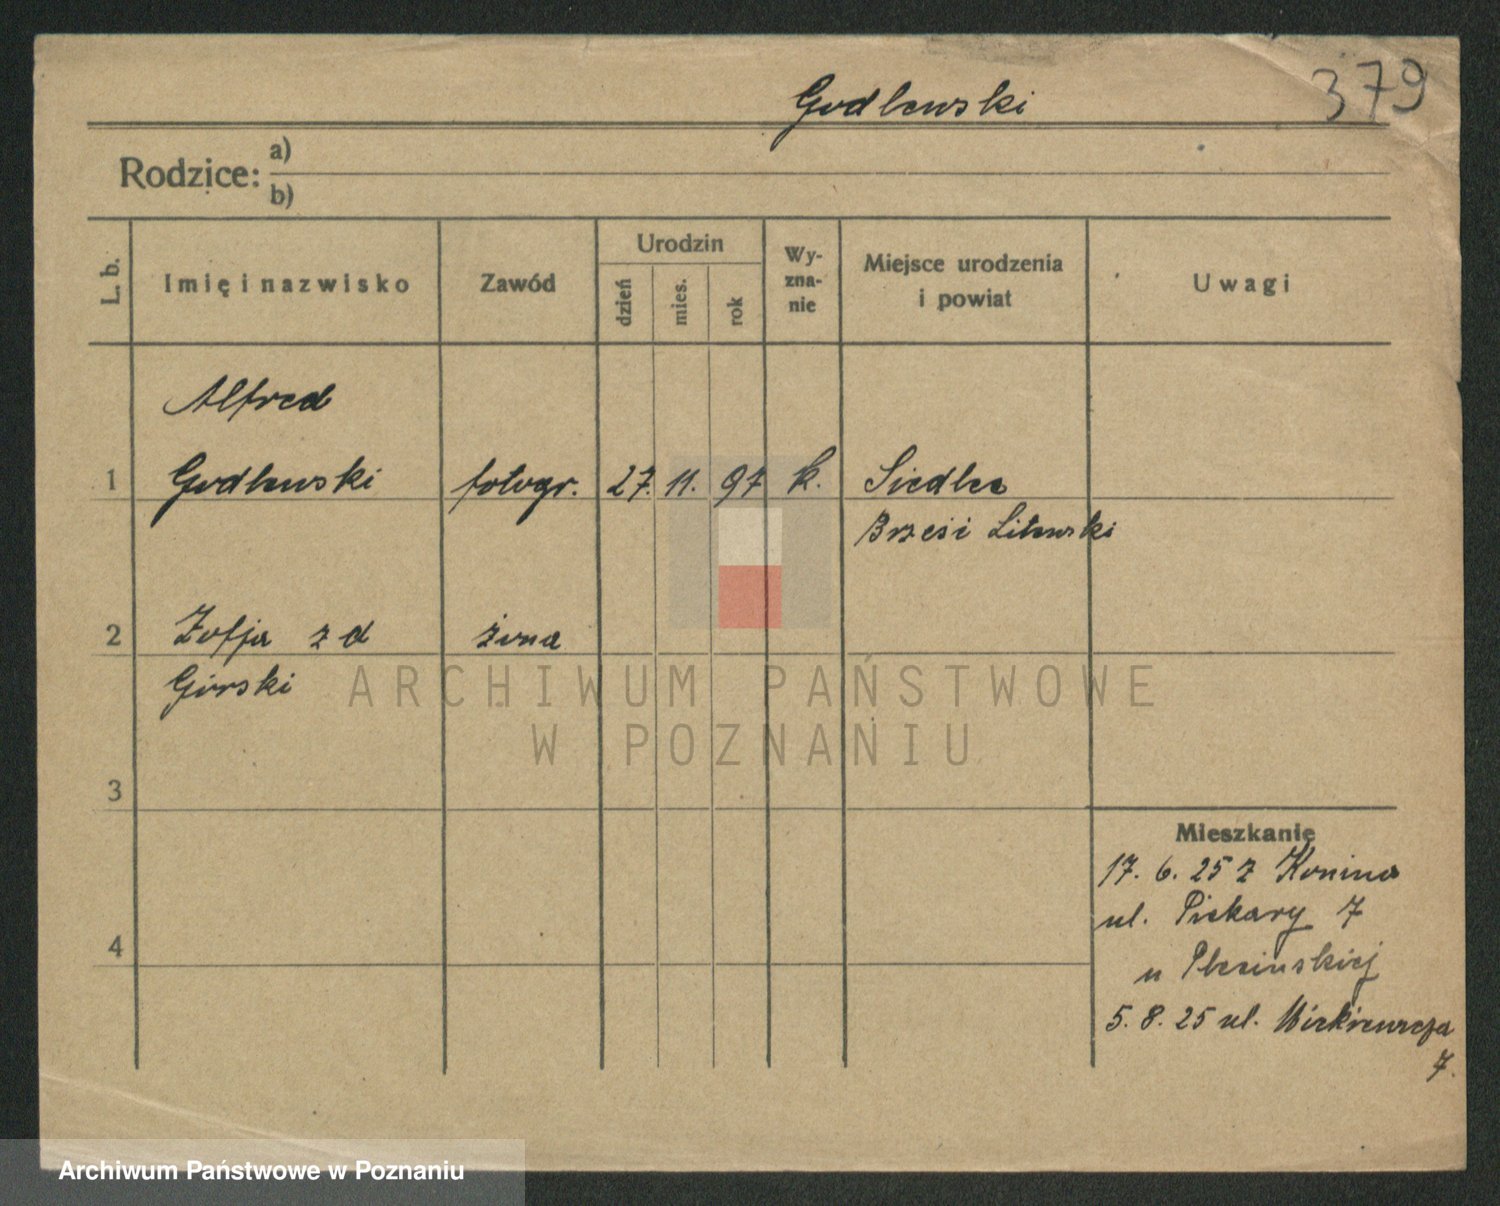 Godlewski
379
Rodzice: a)
b)
L. b.
Imię i nazwisko
Zawód
Urodzin
dzień
mies.
rok
Wy-
zna-
nie
Miejsce urodzenia
i powiat
Uwagi
Alfred
1 Godlewski fotogr. 27. 11. 97 k. Siedlce
Brześć Litewski
2 Zofja z d żona
Górski
ARCHIWUM PAŃSTWOWE
W POZNANIU
3
Mieszkanie
17. 6. 25 z Konina
ul. Piekary 7
4
u
5. 8. 25 ul.
7.
Archiwum Państwowe w Poznaniu